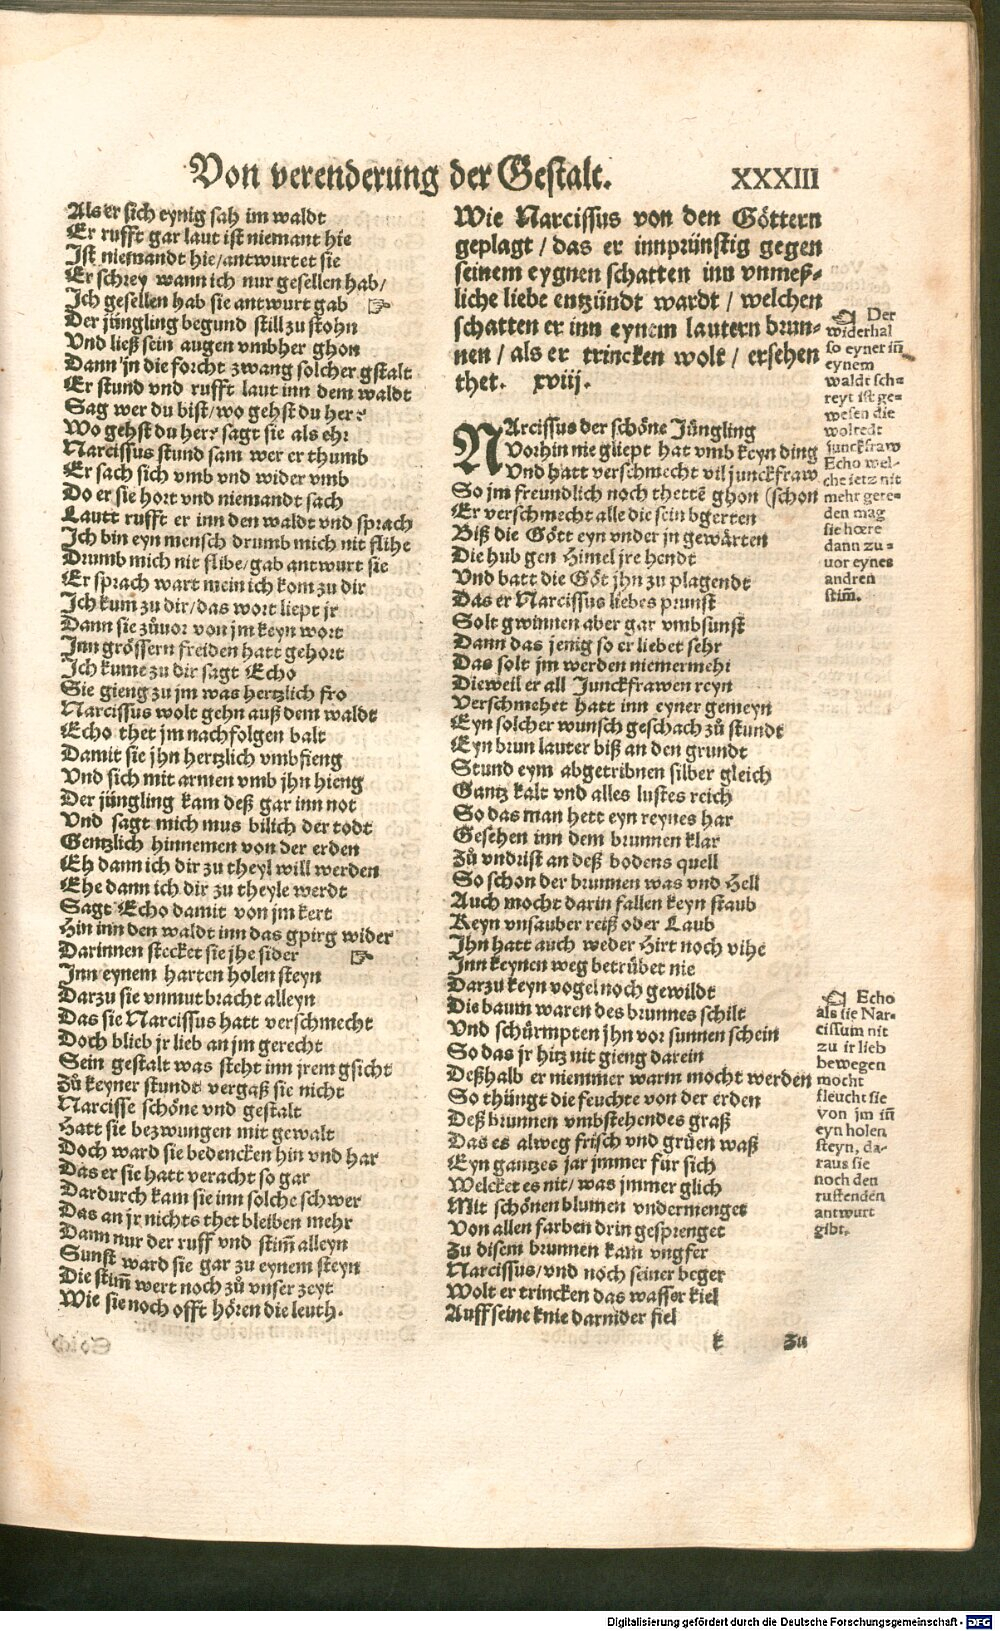 Von verenderung der Gestalt. XXXIII
Als er sich eynig sah im waldt
Er rufft gar laut ist niemant hie
Ist niemandt hie/antwurtet sie
Er schrey wann ich nur gesellen hab/
Ich gesellen hab sie antwurt gab ☞
Der jüngling begund still zu stohn
Vnd ließ sein augen vmbher ghon
Dann in die forcht zwang solcher gstalt
Er stund vnd rufft laut inn dem waldt
Sag wer du bist/wo gehst du her?
Wo gehst du her? sagt sie als ehr
Narcissus stund sam wer er thumb
Er sach sich vmb vnd wider vmb
Do er sie hort vnd niemandt sach
Lautt rufft er inn den waldt vnd sprach
Ich bin eyn mensch drumb mich nit flihe
Drumb mich nit flihe/gab antwurt sie
Er sprach wart mein ich kom zu dir
Ich kum zu dir/das wort liept jr
Dann sie zůuor von jm keyn wort
Inn grössern freiden hatt gehort
Ich kume zu dir sagt Echo
Sie gieng zu jm was hertzlich fro
Narcissus wolt gehn auß dem waldt
Echo thet jm nachfolgen balt
Damit sie jhn hertzlich vmbfieng
Vnd sich mit armen vmb jhn hieng
Der jüngling kam deß gar inn not
Vnd sagt mich mus bilich der todt
Gentzlich hinnemen von der erden
Eh dann ich dir zu theyl will werden
Ehe dann ich dir zu theyle werdt
Sagt Echo damit von jm kert
Hin inn den waldt inn das gpirg wider
Darinnen stecket sie jhe sider ☞
Inn eynem harten holen steyn
Darzu sie vnmut bracht alleyn
Das sie Narcissus hatt verschmecht
Doch blieb jr lieb an jm gerecht
Sein gestalt was steht inn jrem gsicht
Zů keyner stundt vergaß sie nicht
Narcisse schöne vnd gestalt
Hatt sie bezwungen mit gewalt
Doch ward sie bedencken hin vnd har
Das er sie hatt veracht so gar
Dardurch kam sie inn solche schwer
Das an jr nichts thet bleiben mehr
Dann nur der ruff vnd stim̃ alleyn
Sunst ward sie gar zu eynem steyn
Die stim̃ wert noch zů vnser zeyt
Wie sie noch offt hören die leuth.
Wie Narcissus von den Göttern
geplagt / das er innprünstig gegen
seinem eygnen schatten inn vnmeß-
liche liebe entzündt wardt / welchen
schatten er inn eynem lautern brun-
nen / als er trincken wolt / ersehen
thet. xviij.
NArcissus der schöne Jüngling
Vorhin nie gliept hat vmb keyn ding
Vnd hatt verschmecht vil junckfraw
So jm freundlich noch thettẽ ghon (schon
Er verschmecht alle die sein bgerten
Biß die Gött eyn vnder jn gewärten
Die hub gen Himel jre hendt
Vnd batt die Göt jhn zu plagendt
Das er Narcissus liebes prunst
Solt gwinnen aber gar vmbsunst
Dann das jenig so er liebet sehr
Das solt jm werden niemermehr
Dieweil er all Junckfrawen reyn
Verschmehet hatt inn eyner gemeyn
Eyn solcher wunsch geschach zů stundt
Eyn brun lauter biß an den grundt
Stund eym abgetribnen silber gleich
Gantz kalt vnd alles lustes reich
So das man hett eyn reynes har
Gesehen inn dem brunnen klar
Zů vndrist an deß bodens quell
So schon der brunnen was vnd Hell
Auch mocht darin fallen keyn staub
Keyn vnsauber reiß oder Laub
Ihn hatt auch weder Hirt noch vihe
Inn keynen weg betrübet nie
Darzu keyn vogel noch gewildt
Die baum waren des brunnes schilt
Vnd schürmpten jhn vor sunnen schein
So das jr hitz nit gieng darein
Deßhalb er niemmer warm mocht werden
So thüngt die feuchte von der erden
Deß brunnen vmbstehendes graß
Das es alweg frisch vnd grüen waß
Eyn gantzes jar jmmer für sich
Welcket es nit/ was jmmer glich
Mit schönen blumen vndermenget
Von allen farben drin gesprenget
Zu disem brunnen kam vngfer
Narcissus/vnd noch seiner beger
Wolt er trincken das wasser kiel
Auff seine knie darnider fiel
Der
widerhal
so eyner in̄
eynem
waldt sch-
reyt ist ge-
wesen die
wolredt
junckfraw
Echo wel-
che ietz nit
mehr gere-
den mag
sie hœre
dann zu-
uor eynes
andren
stim̃.
Echo
als sie Nar-
cissum nit
zu ir lieb
bewegen
mocht
fleucht sie
von jm in̄
eyn holen
steyn, da-
raus sie
noch den
ruffenden
antwurt
gibt.
k Zu
Digitalisierung gefördert durch die Deutsche Forschungsgemeinschaft - DFG